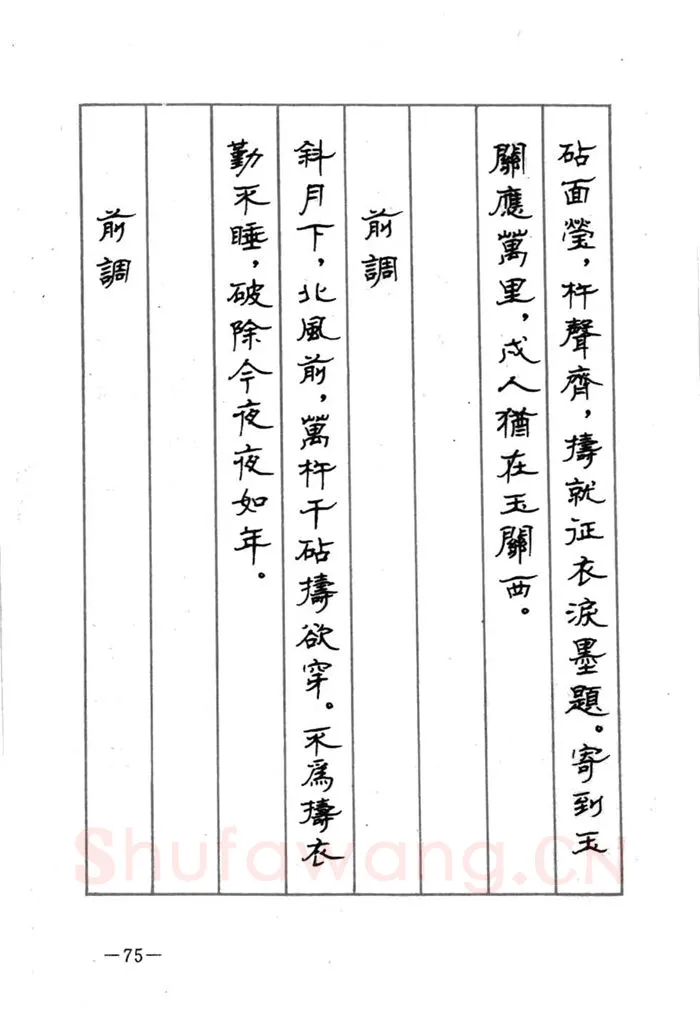 砧面瑩，杵聲齊，擣就征衣淚墨題。寄到玉
關應萬里，戍人猶在玉關西。
前調
斜月下，北風前，萬杵千砧擣欲穿。不爲擣衣
勤不睡，破除今夜夜如年。
前調
—75—
Shufawang.CN